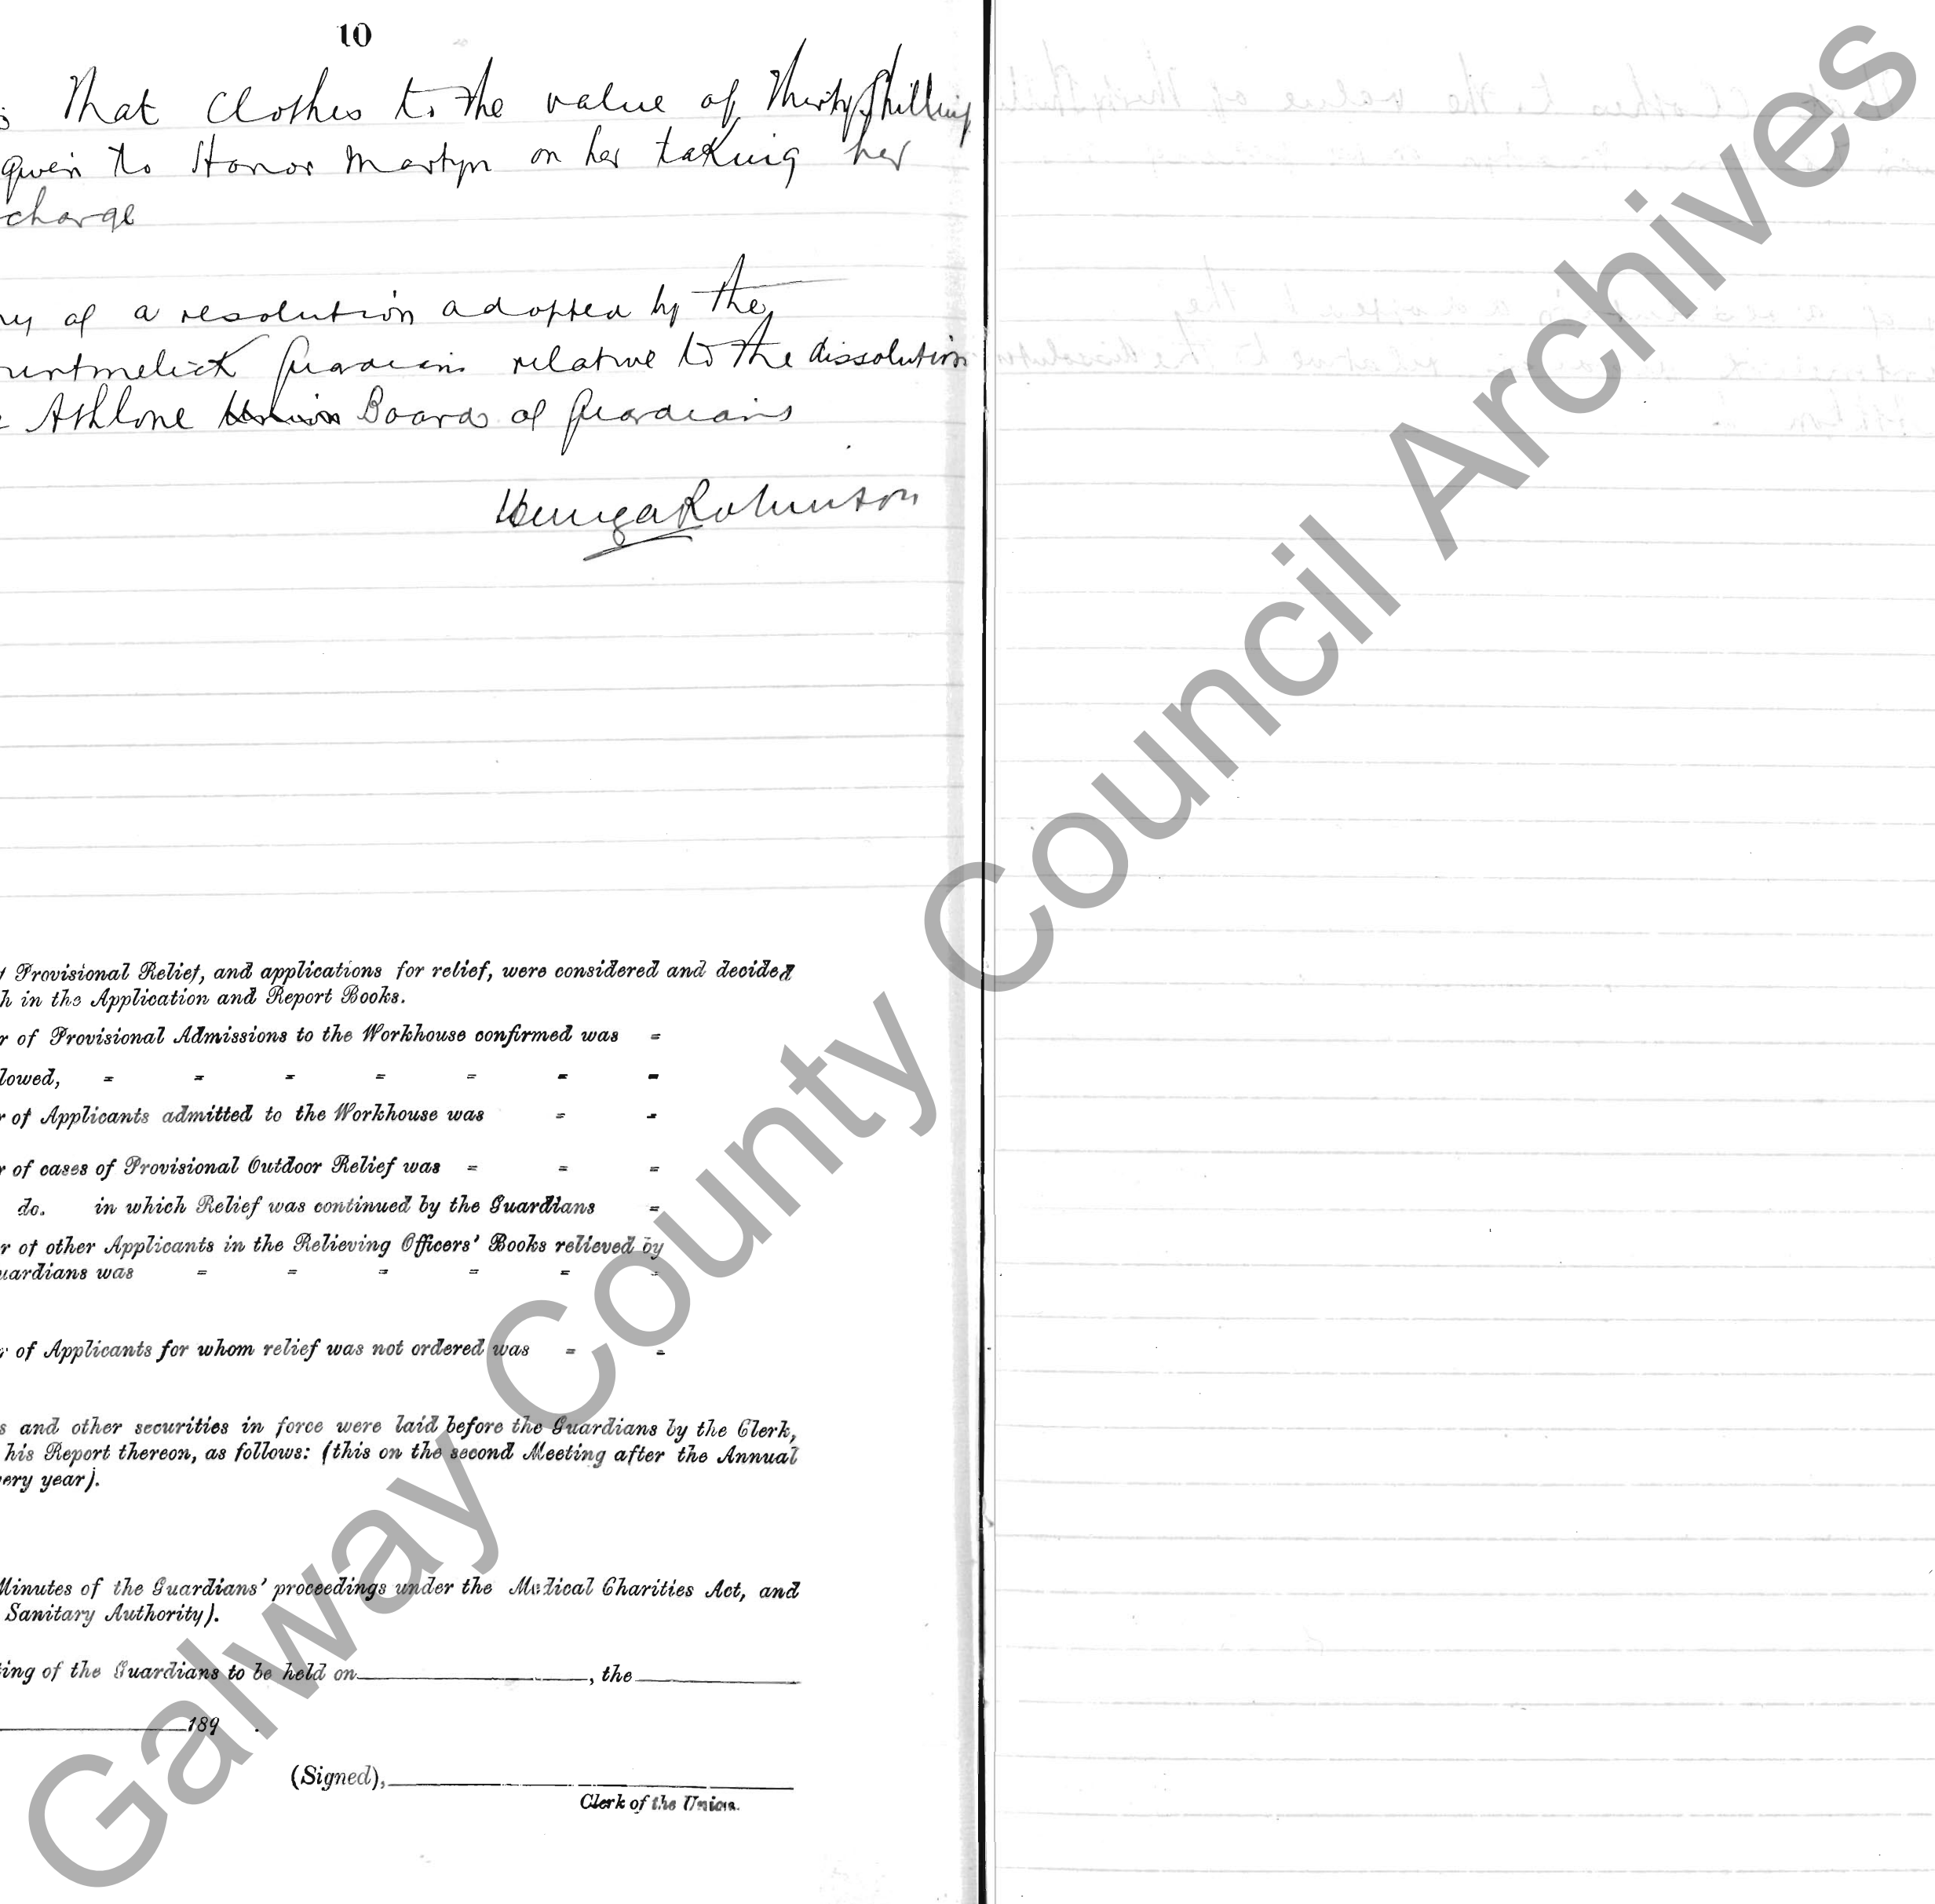 10
That Clothes to the value of Thirty Shilling
given to Honor Martyn on her taking her
charge
of a resolution adopted by the
urtmelick Guardians relative to the dissolution
Athlone Union Board of Guardians
Robinson
Provisional Relief, and applications for relief, were considered and decided
h in the Application and Report Books.
r of Provisional Admissions to the Workhouse confirmed was =
lowed, = = = = = = =
r of Applicants admitted to the Workhouse was = =
r of cases of Provisional Outdoor Relief was = = =
do. in which Relief was continued by the Guardians =
r of other Applicants in the Relieving Officers' Books relieved by
uardians was = = = = = =
of Applicants for whom relief was not ordered was = =
s and other securities in force were laid before the Guardians by the Clerk,
his Report thereon, as follows: (this on the second Meeting after the Annual
very year).
Minutes of the Guardians' proceedings under the Medical Charities Act, and
Sanitary Authority).
ting of the Guardians to be held on , the
189 .
(Signed),
Clerk of the Union.
Galway County Council Archives